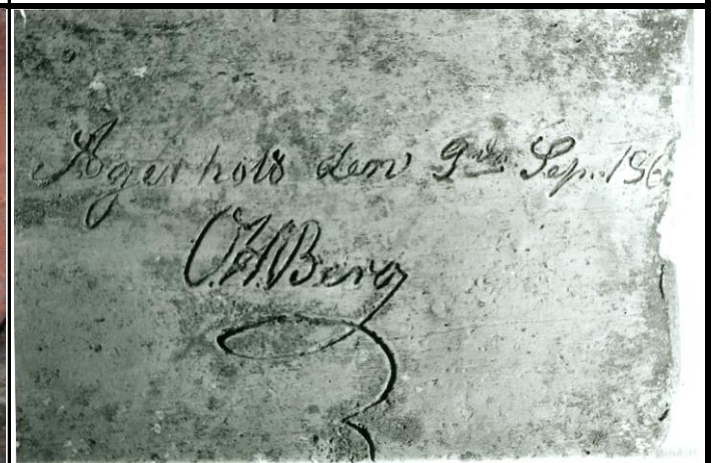 Agerhold den 9de Sep. 186
Berg